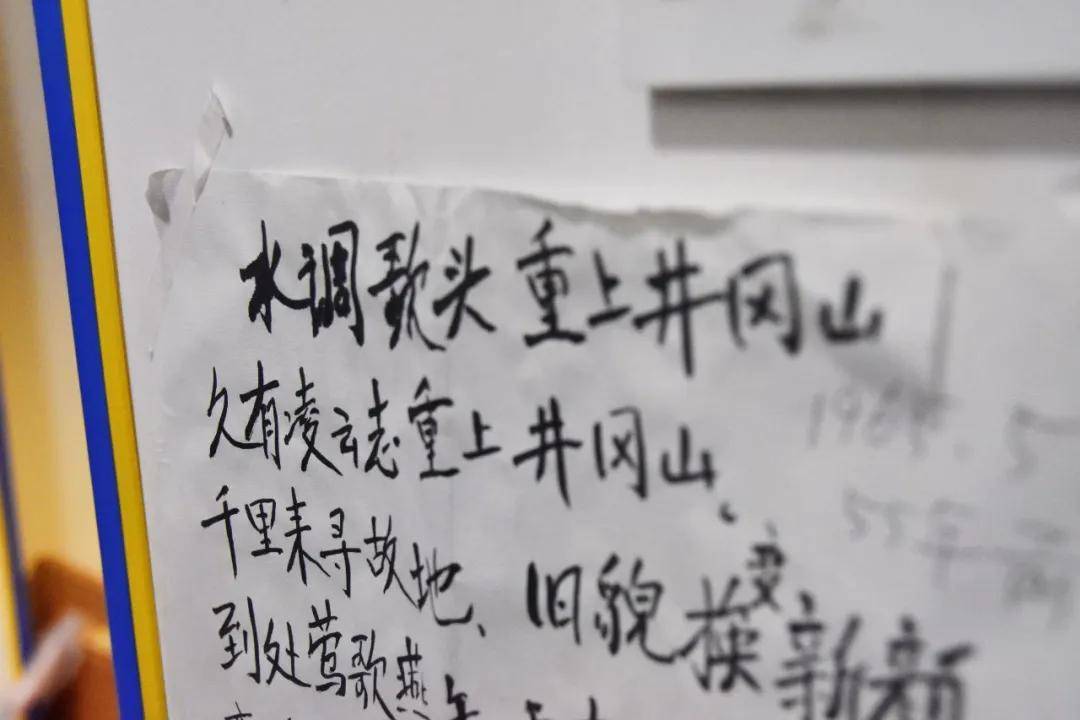 水调歌头 重上井冈山
久有凌云志重上井冈山、
千里来寻故地、旧貌换变新颜
到处莺歌燕